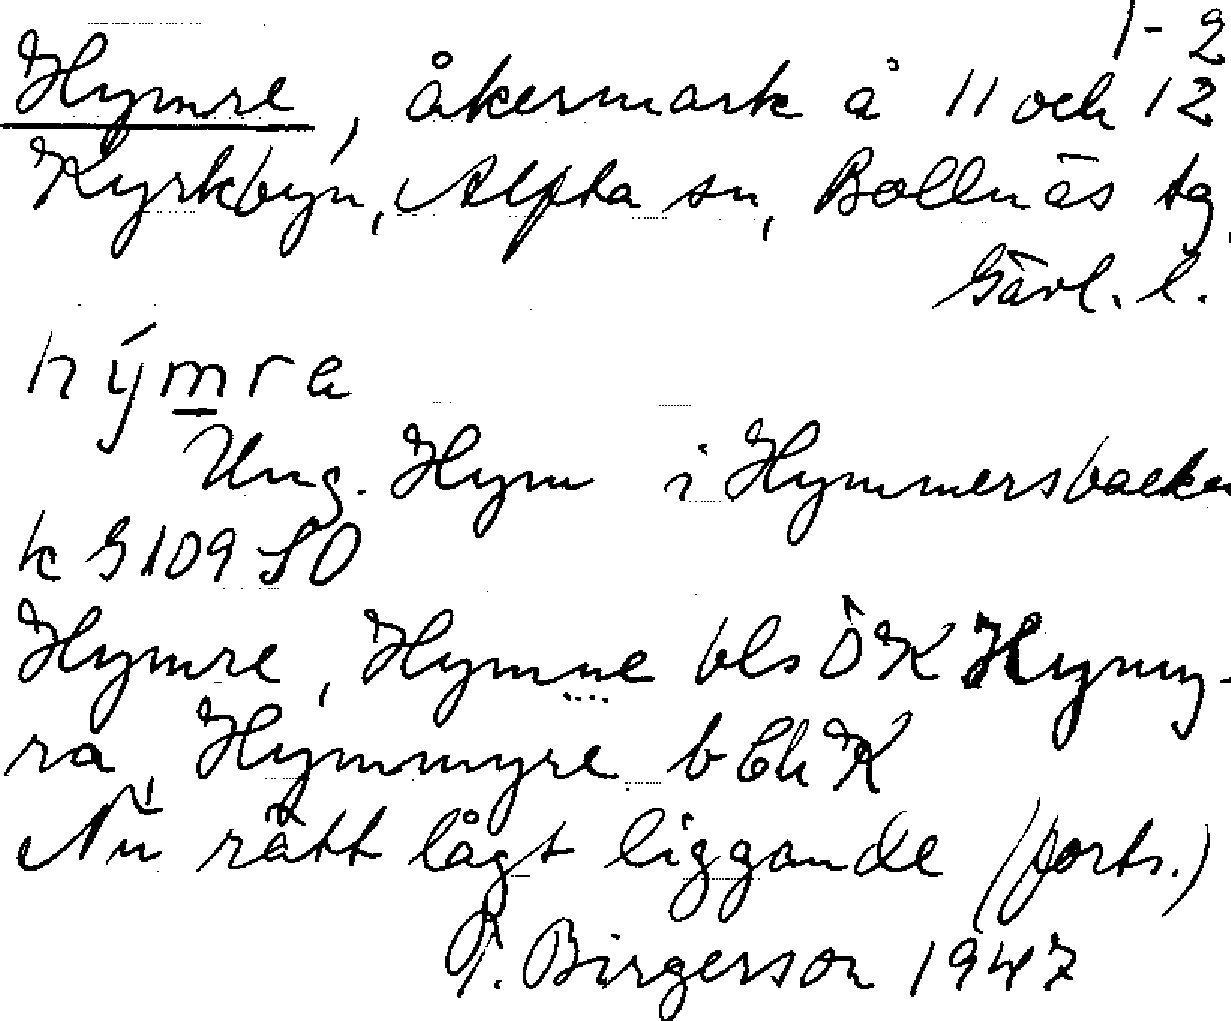 1-2
Hymre, åkermark å 11 och 12
Kyrkbyn, Alfta sn, Bollnäs tg,
Gävl. l.
hýmra
Ung. Hym i Hymmersbacken
k G 109 SO
Hymre, Hymne bls ÖK Hymy-
ra, Hymmyre b Ch K
Nu rätt lågt liggande (forts.)
T. Birgerson 1947